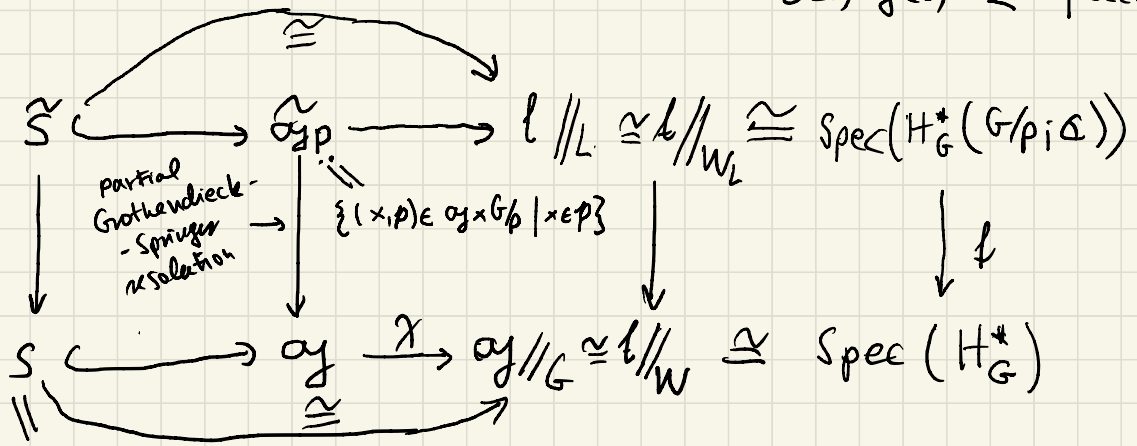 ≅
S̃ ↪ 𝔤̃_P → 𝔩//L ≅ 𝔱//W_L ≅ Spec(H*_G(G/P; ℂ))
partial
Grothendieck-
-Springer
resolution
{(x,p) ∈ 𝔤 × G/P | x ∈ p}
f
S ↪ 𝔤 →^χ 𝔤//G ≅ 𝔱//W ≅ Spec(H*_G)
≅
||